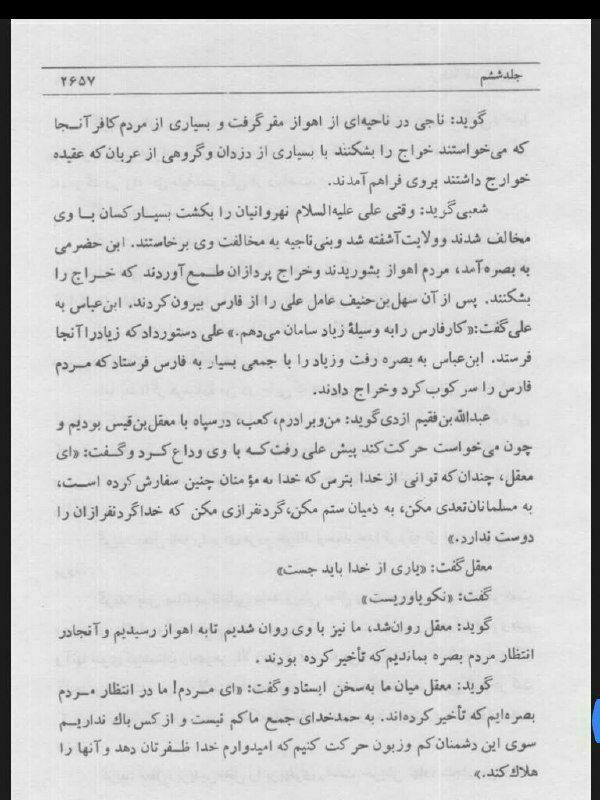 جلدششم
۲۶۵۷
گوید: ناجی در ناحیه‌ای از اهواز مقر گرفت و بسیاری از مردم کافر آنجا
که می‌خواستند خراج را بشکنند با بسیاری از دزدان و گروهی از عربان که عقیده
خوارج داشتند بروی فراهم آمدند.
شعبی گوید: وقتی علی علیه‌السلام نهروانیان را بکشت بسیار کسان با وی
مخالف شدند و ولایت آشفته شد و بنی‌ناجیه به مخالفت وی برخاستند. ابن حضرمی
به بصره آمد، مردم اهواز بشوریدند و خراج پردازان طمع آوردند که خراج را
بشکنند. پس از آن سهل‌بن‌حنیف عامل علی را از فارس بیرون کردند. ابن‌عباس به
علی گفت:«کار فارس را به وسیلهٔ زیاد سامان می‌دهم.» علی دستور داد که زیاد را آنجا
فرستد. ابن‌عباس به بصره رفت و زیاد را با جمعی بسیار به فارس فرستاد که مردم
فارس را سرکوب کرد و خراج دادند.
عبدالله‌بن‌فقیم ازدی گوید: من و برادرم، کعب، در سپاه با معقل‌بن‌قیس بودیم و
چون می‌خواست حرکت کند پیش علی رفت که با وی وداع کرد و گفت: «ای
معقل، چندان که توانی از خدا بترس که خدا به مؤمنان چنین سفارش کرده است،
به مسلمانان تعدی مکن، به ذمیان ستم مکن، گردنفرازی مکن که خدا گردنفرازان را
دوست ندارد.»
معقل گفت: «یاری از خدا باید جست»
گفت: «نکو یاوریست»
گوید: معقل روان شد، ما نیز با وی روان شدیم تا به اهواز رسیدیم و آنجا در
انتظار مردم بصره بماندیم که تأخیر کرده بودند.
گوید: معقل میان ما به سخن ایستاد و گفت: «ای مردم! ما در انتظار مردم
بصره‌ایم که تأخیر کرده‌اند. به حمد خدای جمع ما کم نیست و از کس باک نداریم
سوی این دشمنان کم و زبون حرکت کنیم که امیدوارم خدا ظفرتان دهد و آنها را
هلاک کند.»